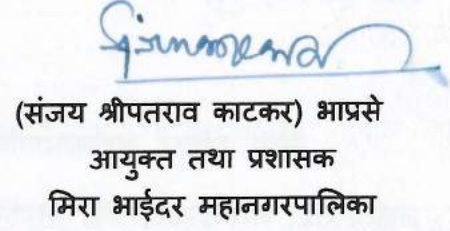 (संजय श्रीपतराव काटकर) भाप्रसे
आयुक्त तथा प्रशासक
मिरा भाईंदर महानगरपालिका